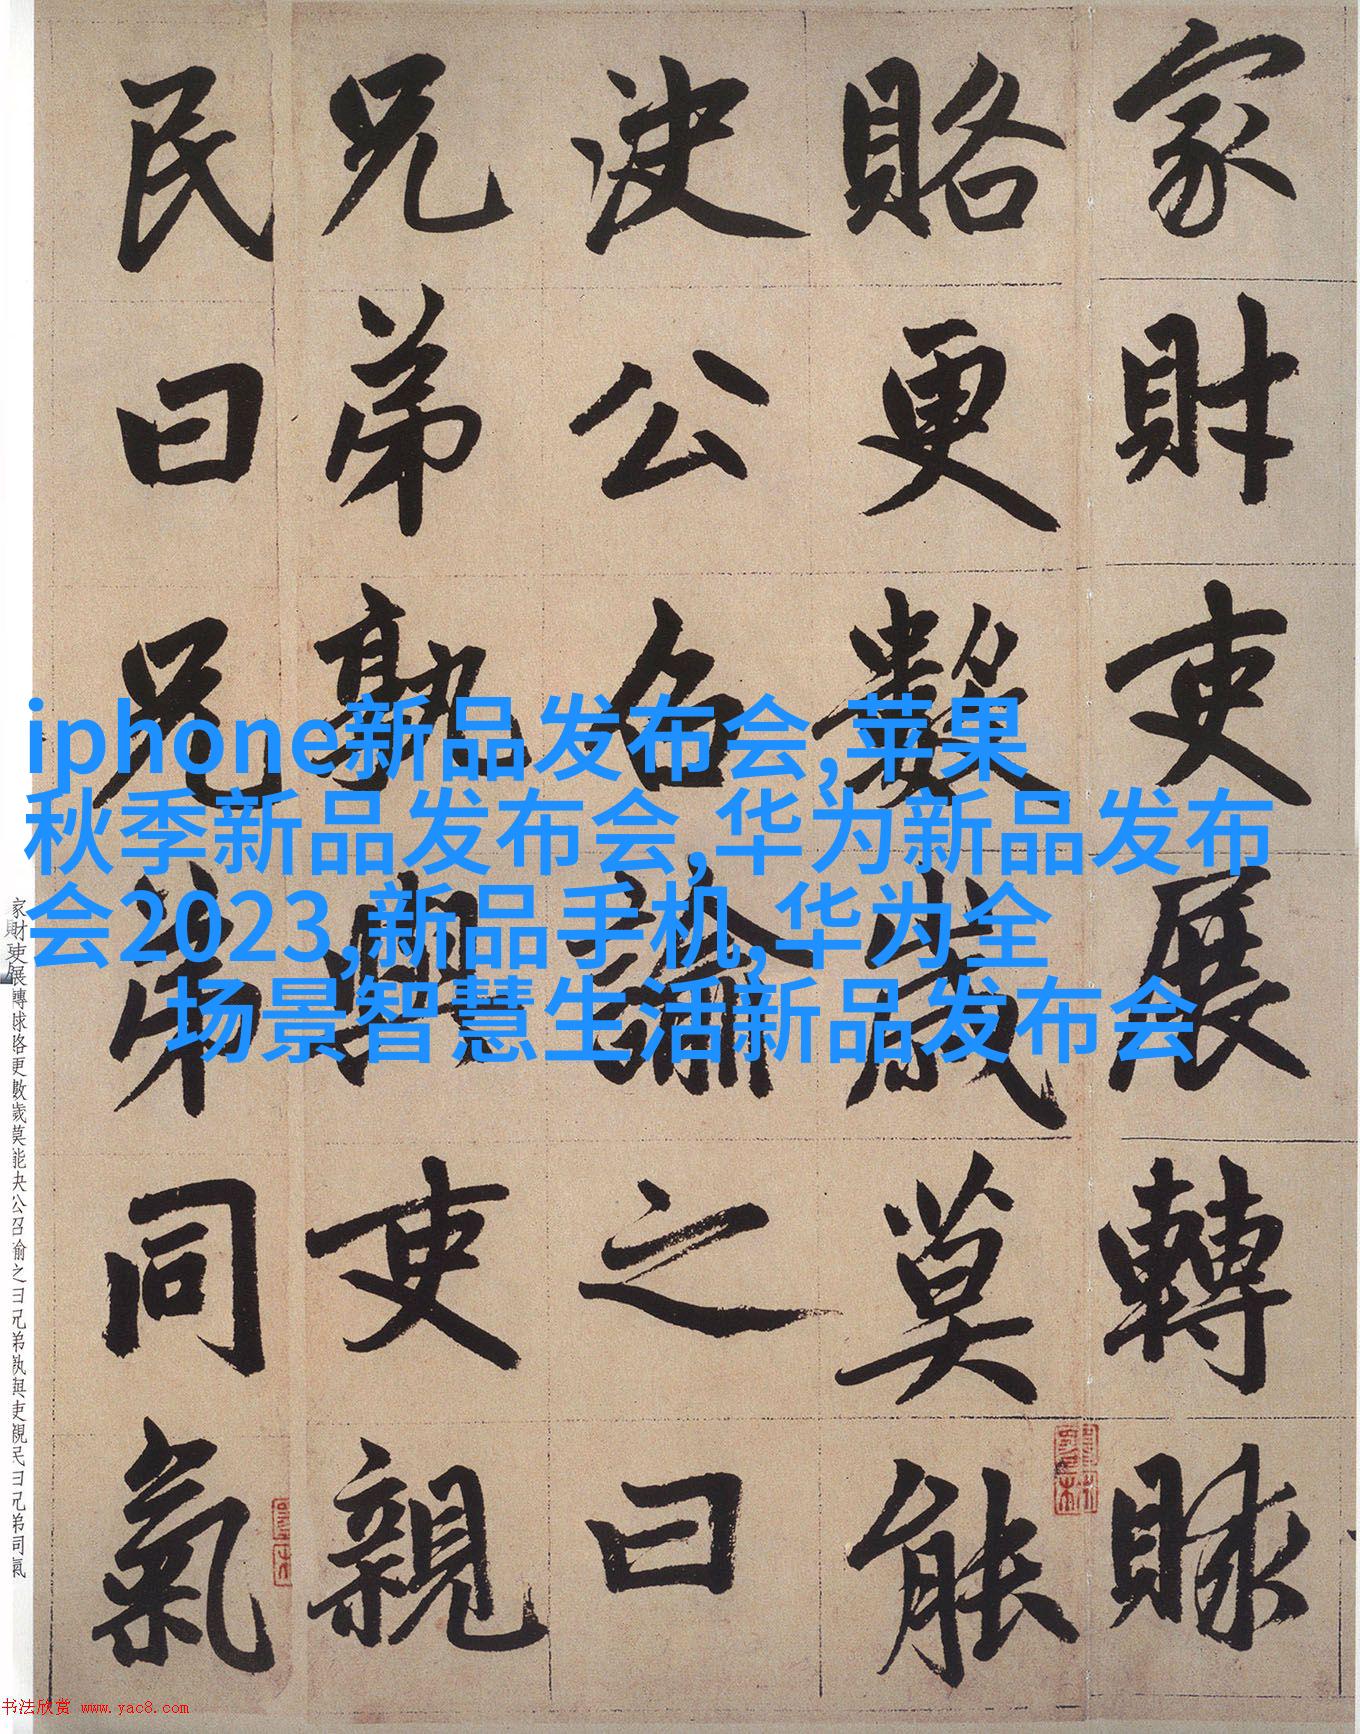 家財吏展轉賕
賂更數歲莫能
決公召諭之曰
兄弟孰與吏親
民曰兄弟同氣
iphone新品发布会,苹果
秋季新品发布会,华为新品发布
会2023,新品手机,华为全
场景智慧生活新品发布会
家財吏展轉賕賂更數歲莫能决公召諭之曰兄弟孰與吏親民曰兄弟同氣
书法欣赏 www.yac8.com